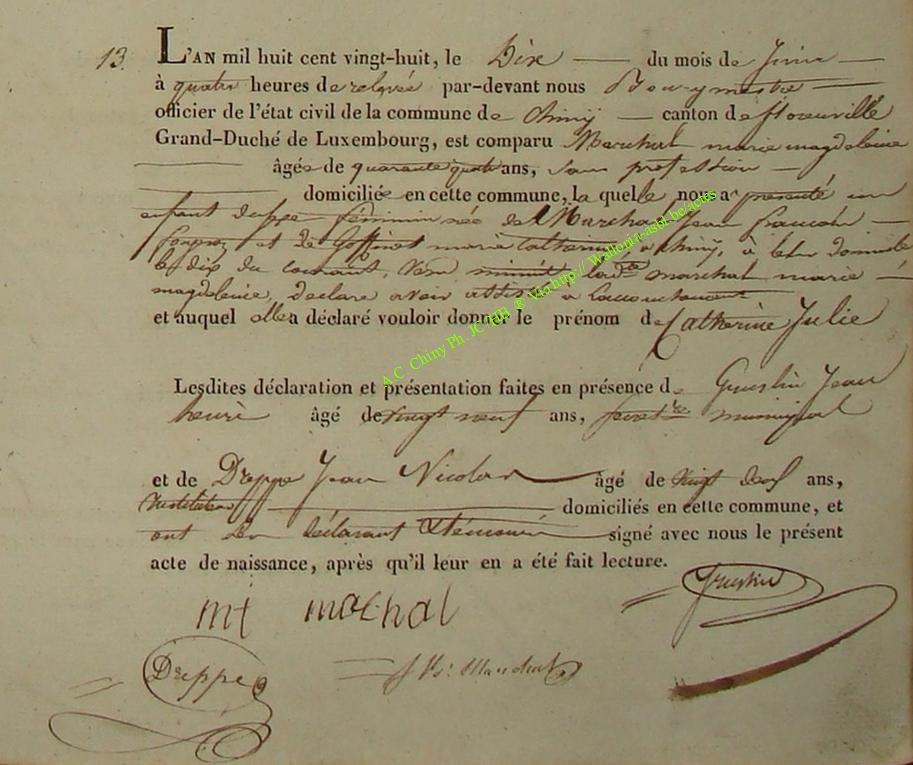 13. L'AN mil huit cent vingt-huit, le Dix du mois de Juin
à quatre heures de relevée par-devant nous Bourgmestre
officier de l'état civil de la commune de Chiny canton de florenville
Grand-Duché de Luxembourg, est comparu Marchal marie magdeleine
âgée de quarante quatre ans, sans profession
domiciliée en cette commune, la quelle nous a presenté un
enfant du sexe féminin née de Marchal Jean francois
et de Goffinet marie catherine, a Chiny, à leur domicile
le dix du courant, vers minuit ladte marchal marie
magdeleine, declare avoir assisté a laccouchement
et auquel elle a déclaré vouloir donner le prénom de Catherine Julie
Lesdites déclaration et présentation faites en présence d Jean
henri âgé de vingt neuf ans, municipal
et de Dreppe Jean Nicolas âgé de vingt deux ans,
instituteur domiciliés en cette commune, et
ont les déclarant & témoins signé avec nous le présent
acte de naissance, après qu'il leur en a été fait lecture.
mt machal
Dreppe
A.C. Chiny Ph. JC HB ® Via http:// Wallonia-asbl.be.actes